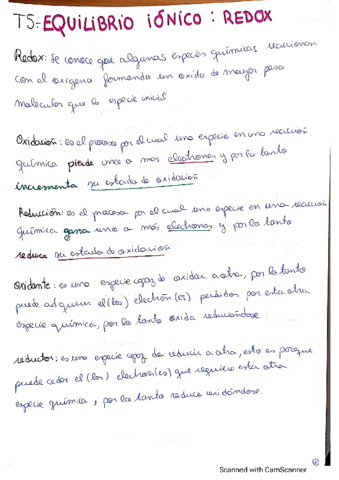 T5-EQUILIBRIO IÓNICO: REDOX
Redox: Se conoce que algunas especies químicas reaccionan
con el oxígeno formando un óxido de mayor peso
molecular que la especie inicial
Oxidación: es el proceso por el cual una especie en una reacción
química pierde uno a más electrones y por lo tanto
incrementa su estado de oxidación
Reducción: es el proceso por el cual una especie en una reacción
química gana uno a más electrones y por lo tanto
reduce su estado de oxidación
Oxidante: es una especie capaz de oxidar a otra, por lo tanto
puede adquirir el (los) electrón (es) perdidos por esta otra
especie química, por lo tanto oxida reduciéndose
reductor: es una especie capaz de reducir a otra, esto es porque
puede ceder el (los) electron(es) que requiere esta otra
especie química, por lo tanto reduce oxidándose.
Scanned with CamScanner